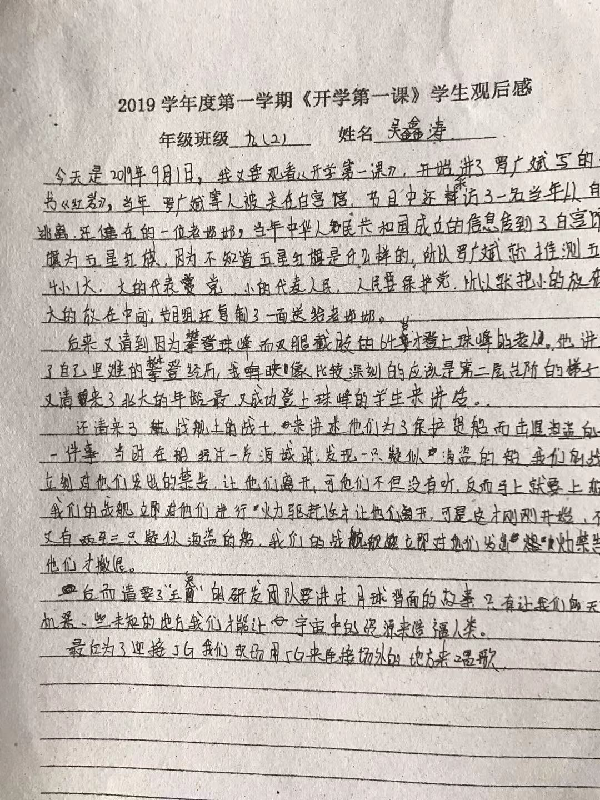 2019 学年度第一学期《开学第一课》学生观后感
年级班级 九(2) 姓名 吴鑫涛
今天是2019年9月1日，我又要观看《开学第一课》，开始讲了罗广斌写的一
书《红岩》，当年罗广斌等人被关在白宫馆，节目中还采访了一名当年从白
逃离，还健在的一位老郭郭，当年中华人民共和国成立的信息传到了白宫馆
旗为五星红旗，因为不知道五星红旗是什么样的，所以罗广斌就推测五
4小1大，大的代表党，小的代表人民，人民要保护党，所以就把小的放在
大的放在中间，节目组还复制了一面送给老郭郭。
后来又请到因为攀登珠峰而双腿截肢但64岁才登上珠峰的老人。他讲
了自己坚难的攀登经历，我映像比较深刻的应该是第二层台阶的梯子
又请来了北大的年龄最 又成功登上珠峰的学生来讲话。
还请来了 战舰上的战士 来讲述他们为了保护货船而击退海盗的
一件事 当时在船经过一片海域时，发现一只疑似海盗的船 我们的战
立刻对他们发出的禁告，让他们离开，可他们不但没有听，反而马上就要上前
我们的战舰立即对他们进行火力驱赶这才让他们离开，可是这才刚刚开始，不
又有两至三只疑似海盗的船，我们的战舰立即对他们发出 禁告
他们才撤退。
后而请要了 的研发团队要讲述月球背面的故事 只有让我们的天
探索一些未知的地方我们才能让宇宙中的资源来造福人类。
最后为了迎接5G我们现场用5G来连接场外的地方来唱歌